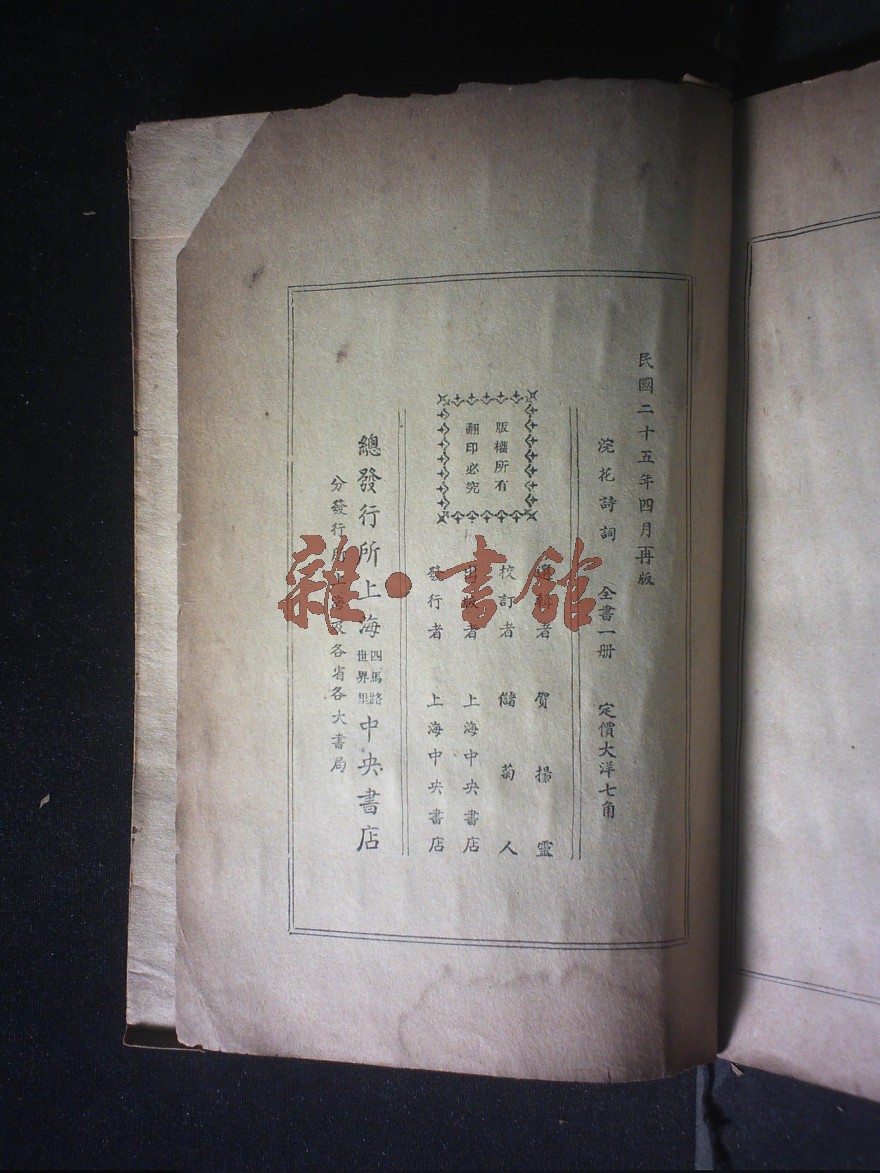 民國二十五年四月再版
浣花詩詞 全書一册 定價大洋七角
版權所有
翻印必究
者 賀揚靈
校訂者 儲菊人
出版者 上海中央書店
發行者 上海中央書店
總發行所上海四馬路世界里中央書店
分發行所上海及各省各大書局
雜·書館